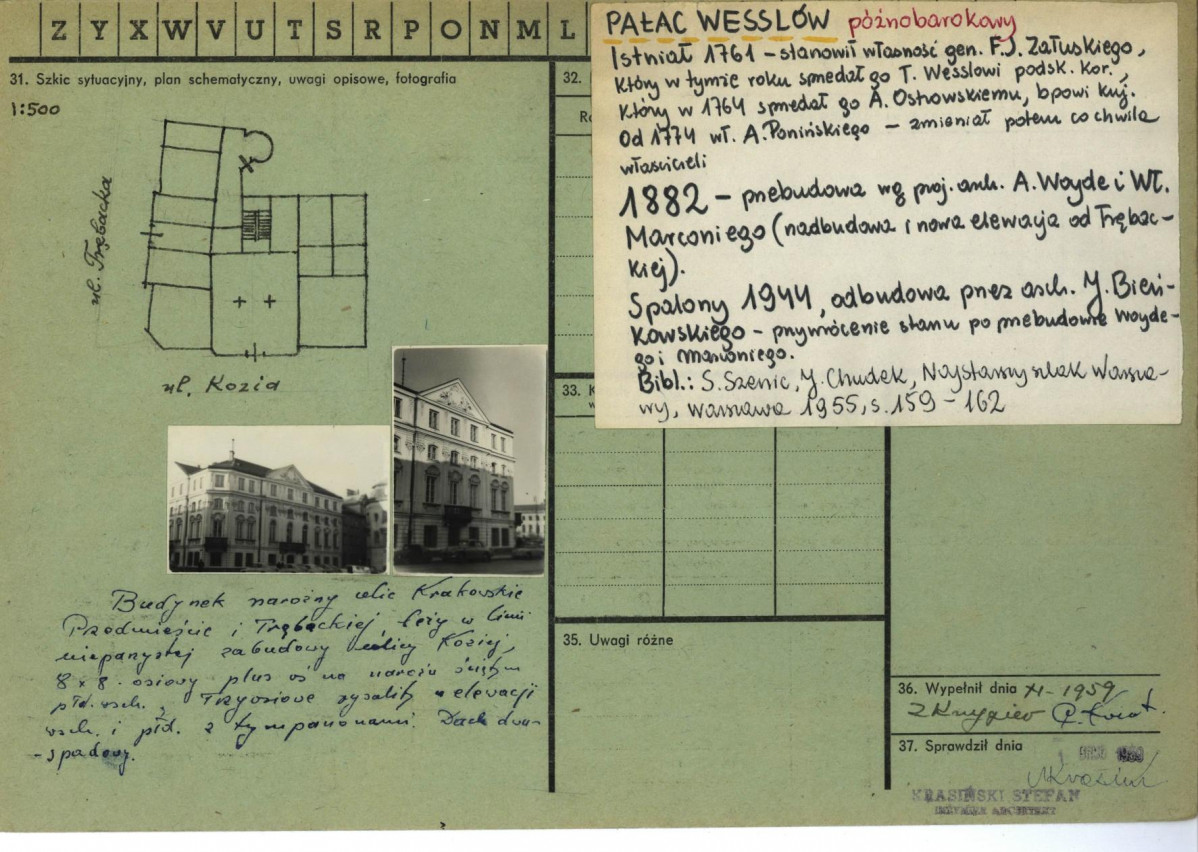 Z Y X W V U T S R P O N M L
31. Szkic sytuacyjny, plan schematyczny, uwagi opisowe, fotografia
1:500
ul. Trębacka
ul. Kozia
Budynek narożny ulic Krakowskie
Przedmieście i Trębackiej leży w linii
nieparzystej zabudowy ulicy Koziej,
8 x 8 osiowy plus oś na narożu ściętym
płd. wsch., Trzyosiowe ryzality w elewacji
wsch. i płd. z tympanonami. Dach dwu-
-spadowy.
32.
PAŁAC WESSLÓW późnobarokowy
Istniał 1761 – stanowił własność gen. F.J. Załuskiego,
który w tymże roku sprzedał go T. Wesslowi podsk. kor.,
który w 1764 sprzedał go A. Ostrowskiemu, bpowi kuj.
Od 1774 wł. A. Ponińskiego – zmieniał potem co chwila
właścicieli
1882 – przebudowa wg proj. arch. A. Woyde i Wł.
Marconiego (nadbudowa i nowa elewacja od Trębac-
kiej).
Spalony 1944, odbudowa przez arch. J. Bień-
kowskiego – przywrócenie stanu po przebudowie Woyde-
go i Marconiego.
Bibl.: S. Szenic, J. Chudek, Najstarszy szlak Warsza-
wy, Warszawa 1955, s. 159 – 162
33. K
35. Uwagi różne
36. Wypełnił dnia XI - 1959
37. Sprawdził dnia
KRASIŃSKI STEFAN
INŻYNIER ARCHITEKT